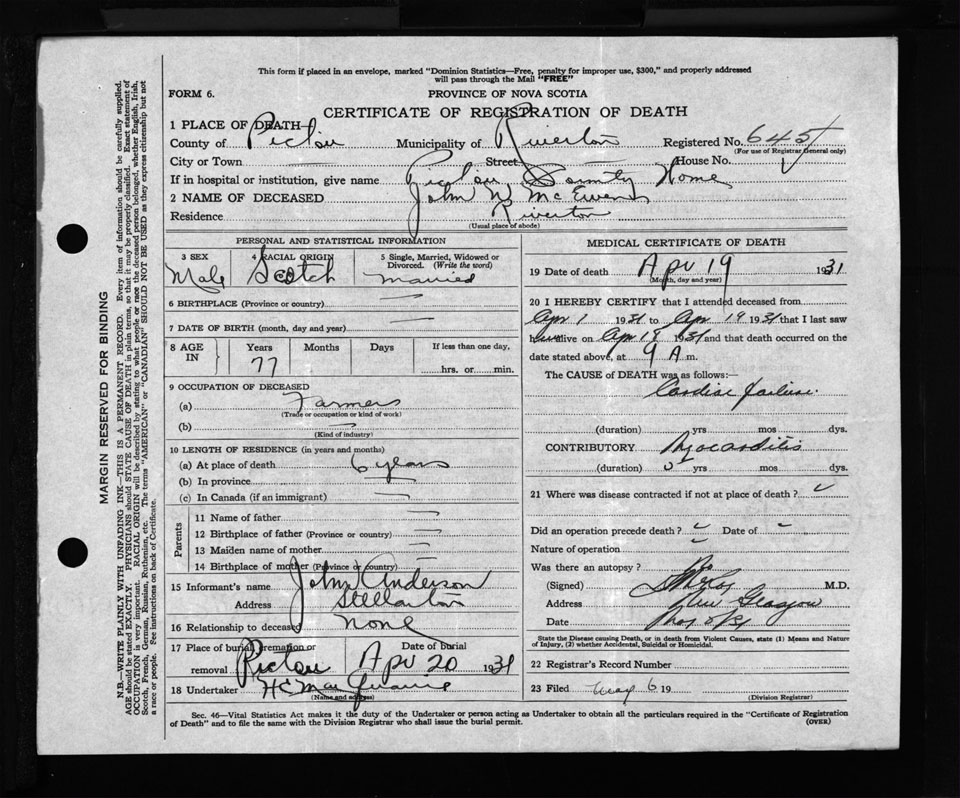 This form if placed in an envelope, marked "Dominion Statistics—Free, penalty for improper use, $300," and properly addressed
will pass through the Mail "FREE"
FORM 6.
PROVINCE OF NOVA SCOTIA
CERTIFICATE OF REGISTRATION OF DEATH
1 PLACE OF DEATH—
County of Pictou Municipality of Riverton Registered No. 645
(For use of Registrar General only)
City or Town Street House No.
If in hospital or institution, give name Pictou County Home
2 NAME OF DECEASED John McEwen
Residence Riverton
(Usual place of abode)
PERSONAL AND STATISTICAL INFORMATION
3 SEX Male
4 RACIAL ORIGIN Scotch
5 Single, Married, Widowed or
Divorced. (Write the word)
Married
6 BIRTHPLACE (Province or country)
7 DATE OF BIRTH (month, day and year)
8 AGE IN
Years Months Days If less than one day,
77 hrs. or min.
9 OCCUPATION OF DECEASED
(a) Farmer
(Trade or occupation or kind of work)
(b)
(Kind of industry)
10 LENGTH OF RESIDENCE (in years and months)
(a) At place of death 6 years
(b) In province
(c) In Canada (if an immigrant)
Parents
11 Name of father
12 Birthplace of father (Province or country)
13 Maiden name of mother
14 Birthplace of mother (Province or country)
15 Informant's name John Anderson
Address Stellarton
16 Relationship to deceased none
17 Place of burial, cremation or Date of burial
removal Pictou Apr 20 1931
18 Undertaker
(Name and address)
MEDICAL CERTIFICATE OF DEATH
19 Date of death Apr 19 1931
(Month, day and year)
20 I HEREBY CERTIFY that I attended deceased from
Apr 1 1931 to Apr 19 1931 that I last saw
him alive on Apr 19 1931 and that death occurred on the
date stated above, at 9 A m.
The CAUSE of DEATH was as follows:—
Cardiac failure
(duration) yrs mos dys.
CONTRIBUTORY Myocarditis
(duration) yrs mos dys.
21 Where was disease contracted if not at place of death?
Did an operation precede death? Date of
Nature of operation
Was there an autopsy? No
(Signed) M.D.
Address New Glasgow
Date
State the Disease causing Death, or in death from Violent Causes, state (1) Means and Nature
of Injury, (2) whether Accidental, Suicidal or Homicidal.
22 Registrar's Record Number
23 Filed May 6 19
(Division Registrar)
Sec. 46—Vital Statistics Act makes it the duty of the Undertaker or person acting as Undertaker to obtain all the particulars required in the "Certificate of Registration
of Death" and to file the same with the Division Registrar who shall issue the burial permit. (OVER)
MARGIN RESERVED FOR BINDING
N.B.—WRITE PLAINLY WITH UNFADING INK—THIS IS A PERMANENT RECORD. Every item of information should be carefully supplied.
AGE should be stated EXACTLY. PHYSICIANS should STATE CAUSE OF DEATH in plain terms, so that it may be properly classified. Exact statement of
OCCUPATION is very important. RACIAL ORIGIN will be described by stating to what people or race the deceased person belonged, whether English, Irish,
Scotch, French, German, Russian, Ruthenian, etc. The terms "AMERICAN" or "CANADIAN" SHOULD NOT BE USED as they express citizenship but not
a race or people. See instructions on back of Certificate.